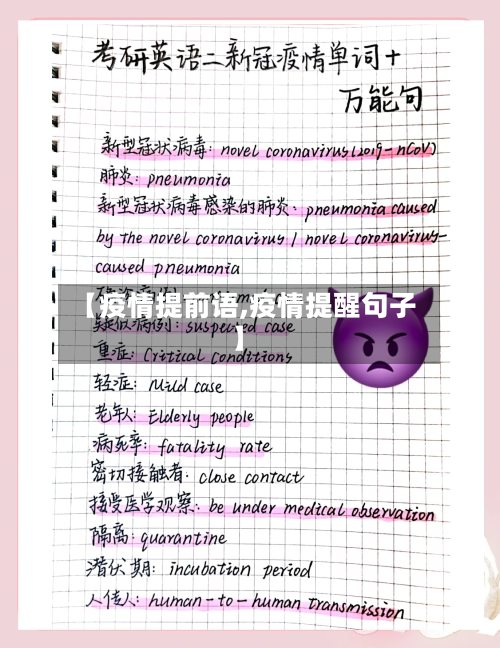 考研英语二新冠疫情单词+
万能句
新型冠状病毒: novel coronavirus(2019-nCoV)
肺炎: pneumonia
新型冠状病毒感染的肺炎: pneumonia caused
by the novel coronavirus / novel coronavirus-
caused pneumonia
【疫情提前语,疫情提醒句子
】
疑似病例: suspected case
重症: Critical conditions
轻症: Mild case
老年人: Elderly people
病死率: fatality rate
密切接触者: close contact
接受医学观察: be under medical observation
隔离: quarantine
潜伏期: incubation period
人传人: human-to-human transmission